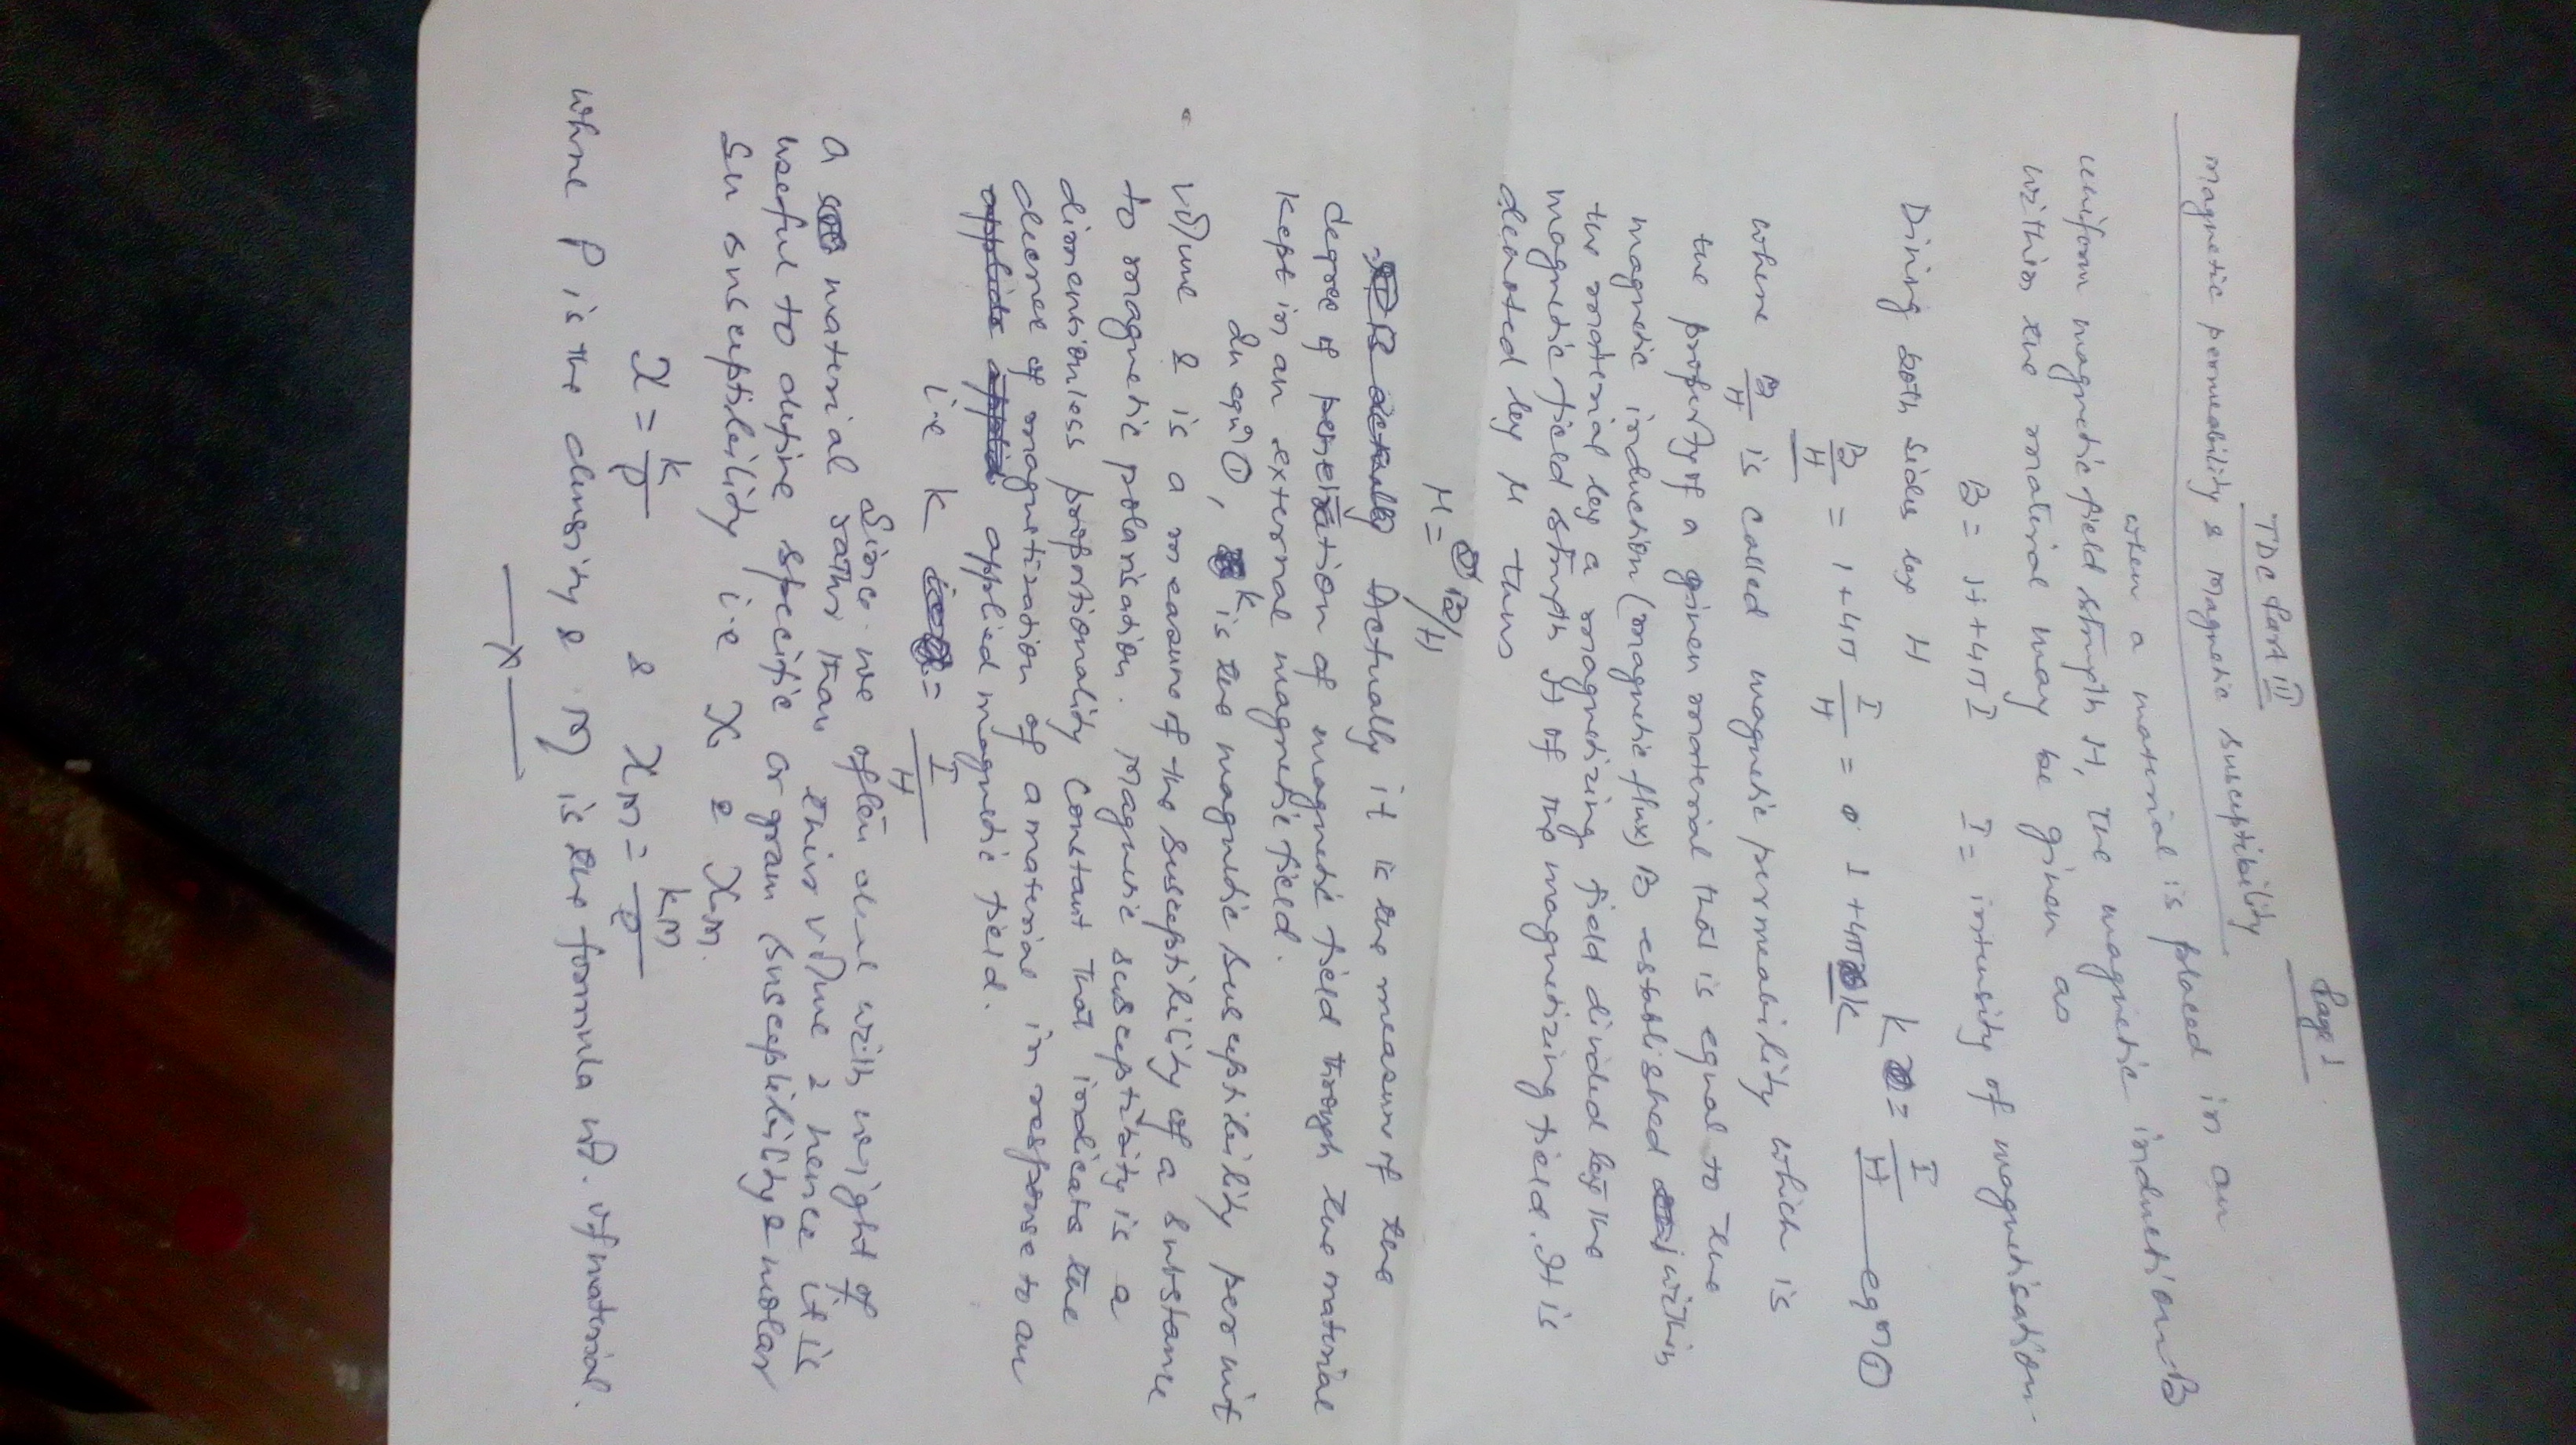 Page 1
TDC Part III
magnetic permeability & magnetic susceptibility
when a material is placed in an
uniform magnetic field strength H, the magnetic induction B
within the material may be given as
B = H + 4πI I = intensity of magnetisation
Diving both sides by H
B/H = 1 + 4π I/H = 1 + 4πk k = I/H eqn ①
where B/H is called magnetic permeability which is
the property of a given material that is equal to the
magnetic induction (magnetic flux) B established within
the material by a magnetizing field divided by the
magnetic field strength H of the magnetizing field. It is
denoted by μ thus
μ = B/H
Actually it is the measure of the
degree of penetration of magnetic field through the material
kept in an external magnetic field.
In eqn ①, k is the magnetic susceptibility per unit
volume & is a measure of the susceptibility of a substance
to magnetic polarisation. Magnetic susceptibility is a
dimensionless proportionality constant that indicate the
degree of magnetization of a material in response to an
applied magnetic field.
i.e k = I/H
Since we often deal with weight of
a material rather than this volume & hence it is
useful to define specific or gram susceptibility & molar
susceptibility i.e χ & χm.
χ = k/ρ & χm = km/ρ
where ρ is the density & M is the formula wt. of material.
x